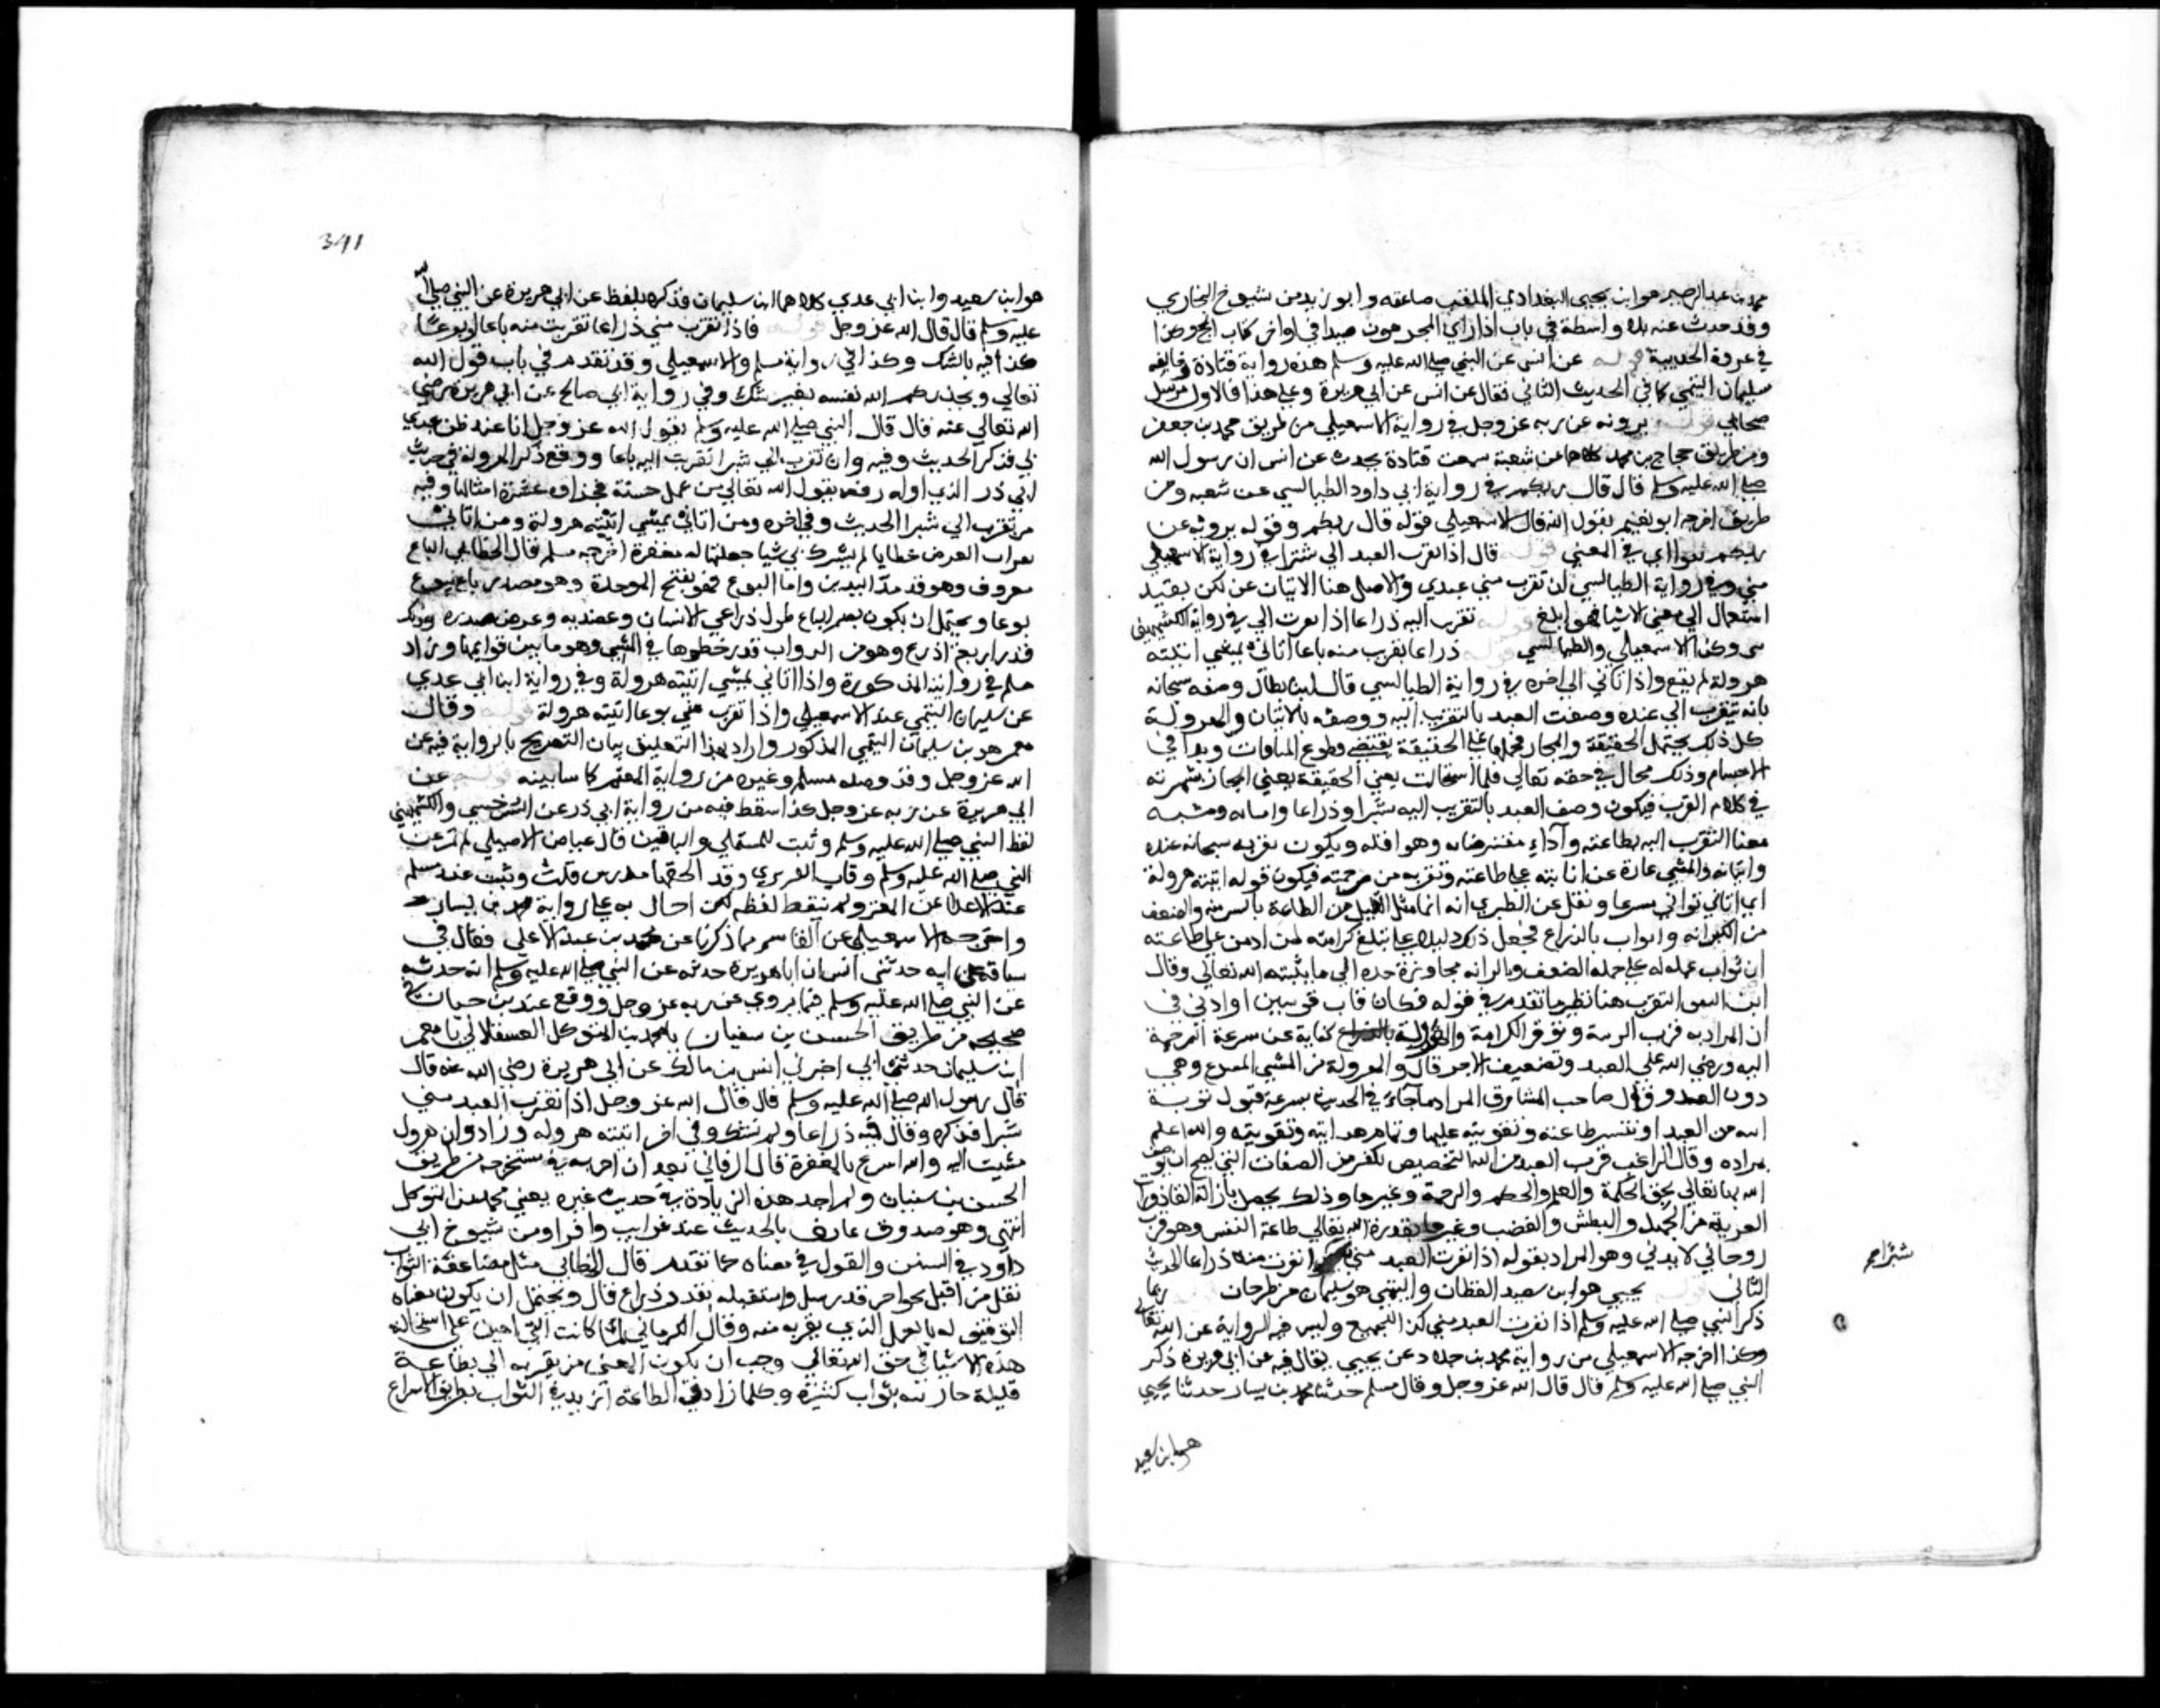 محمد بن عبد الرحيم هو ابن يحيى البغدادي الملقب صاعقه وابو زيد من شيوخ البخاري
وقد حدث عنه بلا واسطة في باب اذا راي المحرمون صيدا في اواخر كتاب الحج وهنا
في غزوة الحديبية قوله عن انس عن النبي صلي الله عليه وسلم هذه رواية قتادة وخالفه
سليمان التيمي كما في الحديث الثاني فقال عن انس عن ابي هريرة وعلي هذا فالاول مرسل
صحابي قوله يرويه عن ربه عز وجل في رواية الاسمعيلي من طريق محمد بن جعفر
ومن طريق حجاج بن محمد كلاهما عن شعبة سمعت قتادة يحدث عن انس ان رسول الله
صلي الله عليه وسلم قال قال ربكم وفي رواية ابي داود الطيالسي عن شعبه ومن
طريقه اخرجه ابو نعيم يقول الله قال الاسمعيلي قوله قال ربكم وقوله يرويه عن
ربكم سوا اي في المعني قوله قال اذا تقرب العبد الي شبرا في رواية الاسمعيلي
مني وفي رواية الطيالسي ان تقرب مني عبدي والاصل هنا الاتيان عن لكن يفيد
استعمال الي معني الانتها فهو ابلغ قوله تقربت اليه ذراعا اذا تقرب الي في رواية الكشميهني
مني وكذا الاسمعيلي والطيالسي قوله ذراعا تقربت منه باعا اتاني يمشي اتيته
هرولة لم يقع واذا اتاني الي اخره في رواية الطيالسي قال ابن بطال وصفه سبحانه
بانه يتقرب الي عبده وصفت العبد بالتقرب اليه ووصفه بالاتيان والهرولة
كل ذلك يحتمل الحقيقة والمجاز فحملها علي الحقيقة يقتضي قطع المسافات وبدا في
الاجسام وذلك محال في حقه تعالي فلما استحالت يعني الحقيقة يعني المجاز لشهرته
في كلام العرب فيكون وصف العبد بالتقرب اليه شبرا وذراعا واتيانه ومشيه
معنا التقرب اليه بطاعته وآداء مفترضاته وهو افله ويكون تقربه سبحانه عبده
واتيانه والمشي عبارة عن اثابته علي طاعته وتقربه من رحمته فيكون قوله اتيته هرولة
اي اتاني ثوابي مسرعا ونقل عن الطبري انه انما مثل القليل من الطاعة بالشبر منه والضعف
من الكرامة والثواب بالذراع فجعل ذلك دليلا علي مبلغ كرامته لمن ادمن علي طاعته
ان ثواب عمله له علي عمله الضعف وان الكرامة مجاوزة حده الي ما يثيبه الله تعالي وقال
ابن التين التقرب هنا نظير ما تقدم في قوله فكان قاب قوسين او ادني في
ان المراد به قرب الرتبة وتوفر الكرامة والهرولة كناية عن سرعة الرحمة
اليه ورضي الله علي العبد وتضعيف الاجر قال والهرولة من المشي المسرع وهي
دون العدو وقال صاحب المشارق المراد بما جاء في الحديث بسرعة قبول توبة
الله من العبد او تيسير طاعته وتقويته عليها وتمام هدايته وتوفيقه والله اعلم
بمراده وقال الراغب قرب العبد من الله التخصيص بكثير من الصفات التي يصح ان يوصف
الله بها تعالي نحو الحكمة والعلم والحكم والرحمة وغيرها وذلك يحصل بازالة القاذورات
المعنوية من الجهل والبطش والغضب وغيرها بقدرة الله تعالي طاعة النفس وهو قرب
روحاني لا بدني وهو المراد بقوله اذا تقرب العبد مني تقربت منه ذراعا الحديث
الثاني قوله يحيى هو ابن سعيد القطان والتيمي هو سليمان من طرخان ربما
ذكر النبي صلي الله عليه وسلم اذا تقرب العبد مني كذا للجميع وليس فيه الرواية عن الله تعالي
وكذا اخرجه الاسمعيلي من رواية محمد بن خلاد عن يحيى يقال فيه عن ابي هريرة ذكر
النبي صلي الله عليه وسلم قال قال الله عز وجل وقال مسلم حدثنا محمد بن يسار حدثنا يحيى
هو ابن سعيد
شبرا صح
341
هو ابن سعيد وابن ابي عدي كلاهما ابن سليمان فذكره بلفظ عن ابي هريرة عن النبي صلي الله
عليه وسلم قال قال الله عز وجل قوله فاذا تقرب مني ذراعا تقربت منه باعا او بوعا
كذا فيه بالشك وكذا في رواية مسلم والاسمعيلي وقد تقدم في باب قول الله
تعالي ويحذركم الله نفسه بغير شك وفي رواية ابي صالح عن ابي هريرة رضي
الله تعالي عنه قال قال النبي صلي الله عليه وسلم يقول الله عز وجل انا عند ظن عبدي
بي فذكر الحديث وفيه وان تقرب الي شبرا تقربت اليه باعا ووقع ذكر الهرولة في حديث
ابي ذر الذي اوله رفعه يقول الله تعالي من عمل حسنة فجزاؤه عشرة امثالها وفيه
من تقرب الي شبرا الحديث وفي اخره ومن اتاني يمشي اتيته هرولة ومن اتاني
بقراب الارض خطايا لم يشرك بي شيا جعلتها له مغفرة اخرجه مسلم قال الخطابي الباع
معروف وهو قدر مد اليدين واما البوع فهو بفتح الموحدة وهو مصدر باع يبوع
بوعا ويحتمل ان يكون بضم الباع طول ذراعي الانسان وعضديه وعرض صدره وذلك
قدر اربع اذرع وهو من الدواب قدر خطوها في المشي وهو ما بين قوايمها وزاد
مسلم في روايته المذكورة واذا اتاني يمشي اتيته هرولة وفي رواية ابن ابي عدي
عن سليمان التيمي عند الاسمعيلي واذا تقرب مني بوعا اتيته هرولة قوله وقال
معمر هو بن سليمان التيمي المذكور واراد بهذا التعليق بيان التصريح بالرواية فيه عن
الله عز وجل وقد وصله مسلم وغيره من رواية المعتمر كما سابينه قوله عن
ابي هريرة عن ربه عز وجل كذا سقط فيه من رواية ابي ذر عن السرخسي والكشميهني
لفظ النبي صلي الله عليه وسلم وثبت للمستملي والباقين قال عياض الاصيلي لم تكن
النبي صلي الله عليه وسلم وقاب الفربري وقد الحقها عبدوس قلت وثبت عند مسلم
عبد الاعلا عن المعتمر ولم يسقط لفظه لكن احال به علي رواية محمد بن يسار
واخرجه الاسمعيلي عن القاسم بن زكريا عن محمد بن عبد الاعلي فقال في
سياقه عن ابيه حدثني انس ان ابا هريرة حدثه عن النبي صلي الله عليه وسلم انه حدثه
عن النبي صلي الله عليه وسلم فيما يروي عن ربه عز وجل ووقع عند بن حبان في
صحيحه من طريق الحسن بن سفيان نا محمد بن المتوكل العسقلاني نا معمر
ابن سليمان حدثني ابي اخبرني انس بن مالك عن ابي هريرة رضي الله عنه قال
قال رسول الله صلي الله عليه وسلم قال قال الله عز وجل اذا تقرب العبد مني
شبرا فذكره وقال فيه ذراعا ولم يشك وفي اخر اتيته هروله وزاد وان هرول
مشيت اليه والله اسرع بالمغفرة قال البرقاني بعد ان اخرجه في مستخرجه من طريق
الحسن بن سفيان ولم اجد هذه الزيادة في حديث غيره يعني محمد بن المتوكل
انتهي وهو صدوق عارف بالحديث عنده غرايب وافراد ومن شيوخ ابي
داود في السنن والقول في معناه كما تقدم قال الخطابي مثل مضاعفة الثواب
بقل من اقبل نحو اخر قدر شبر واستقبله بقدر ذراع قال ويحتمل ان يكون معناه
التوفيق له بالعمل الذي يقربه منه وقال الكرماني لما كانت البراهين علي استحالة
هذه الاشيا في حق الله تعالي وجب ان يكون المعني من تقرب الي بطاعة
قليلة جازيته بثواب كثيرة وكلما زاد في الطاعة ازيد في الثواب بطريق الاسراع